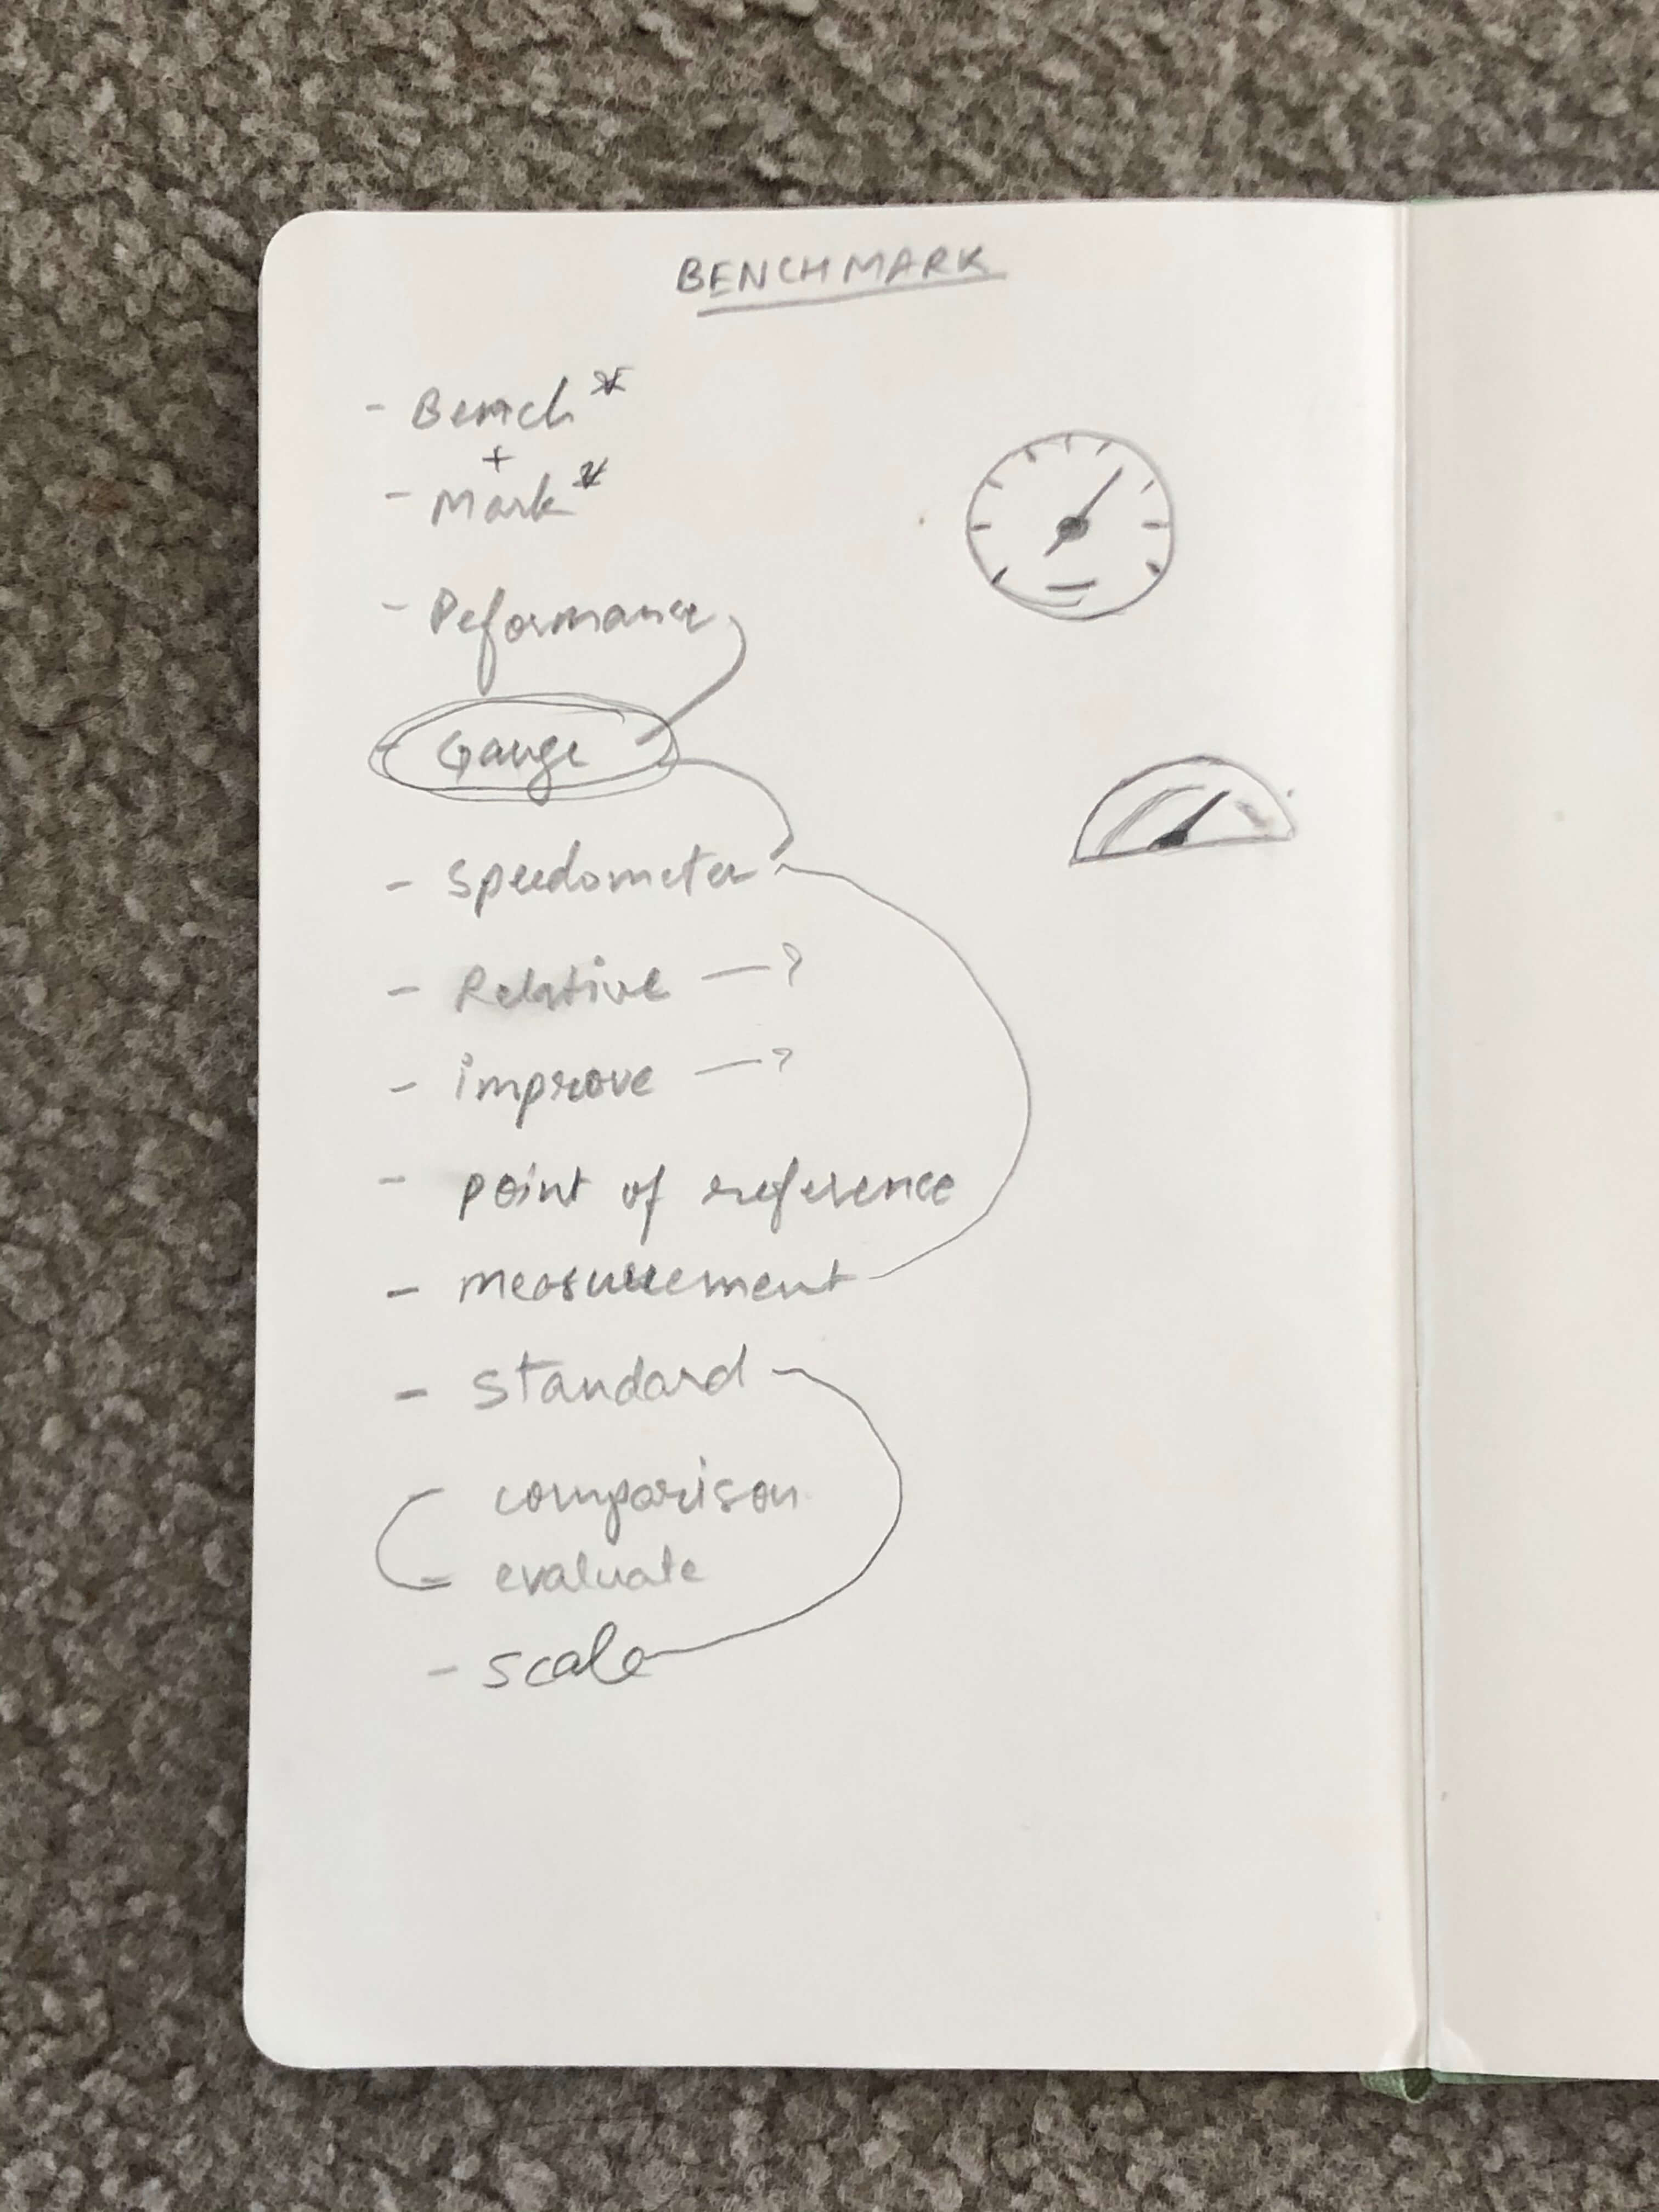 BENCHMARK
- Bench*
+
- Mark*
- Peformance
- Gauge
- speedometer
- Relative —?
- improve —?
- point of reference
- measurement
- standard
- comparison
- evaluate
- scale